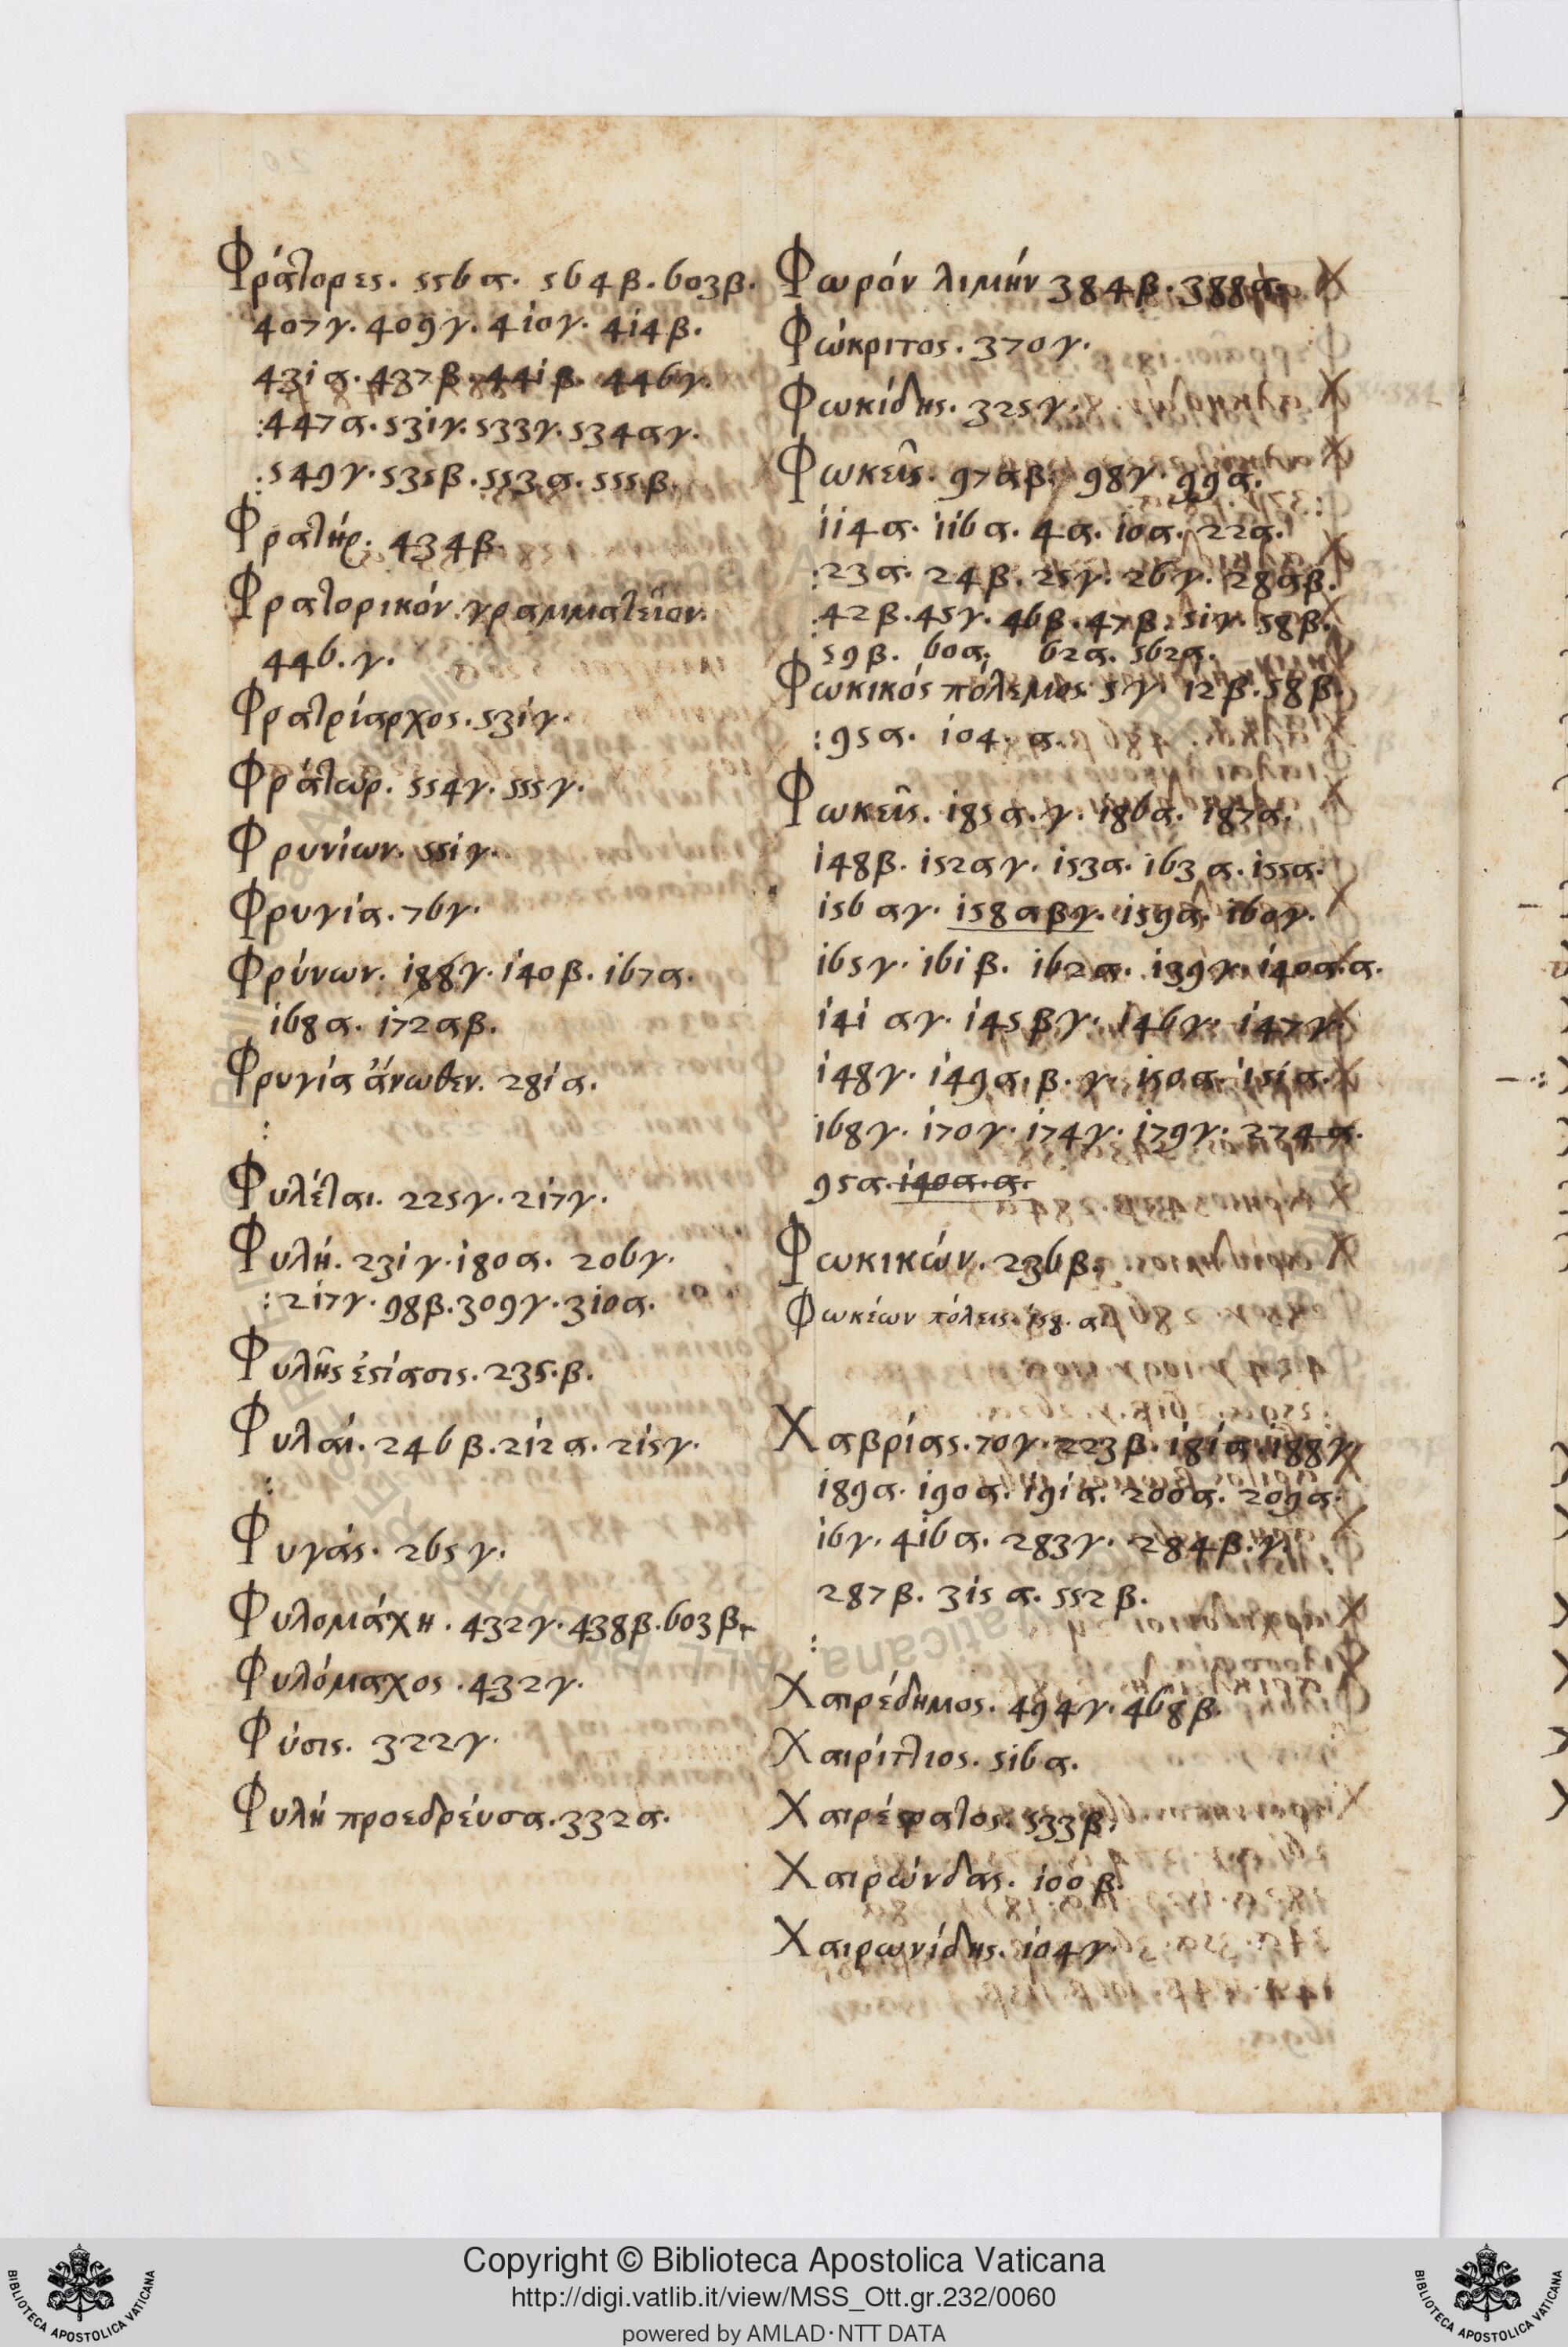 Φράτορες. 556α. 564β. 603β.
407γ. 409γ. 410γ. 414β.
431α. 437β. 441β. 446γ.
:447α. 531γ. 533γ. 534αγ.
:549γ. 535β. 553α. 555β.
Φρατήρ. 434β.
Φρατορικόν. γραμματεῖον.
446. γ.
Φρατρίαρχος. 531γ.
Φράτωρ. 554γ. 555γ.
Φρυνίων. 551γ.
Φρυγία. 76γ.
Φρύνων. 188γ. 140β. 167α.
168α. 172αβ.
Φρυγία ἄνωθεν. 281α.
:
Φυλέται. 225γ. 217γ.
Φυλή. 231γ. 180α. 206γ.
:217γ. 98β. 309γ. 310α.
Φυλῆς ἑστίασις. 235. β.
Φυλαί. 246β. 212α. 215γ.
:
Φυγάς. 265γ.
Φυλομάχη. 432γ. 438β. 603β.
Φυλόμαχος. 432γ.
Φύσις. 322γ.
Φυλή προεδρεύσα. 332α.
Φωρόν λιμήν 384β. 388α.
Φώκριτος. 370γ.
Φωκίδης. 325γ.
Φωκεῖς. 97αβ. 98γ. 99α.
114α. 116α. 4α. 10α. 22α.
:23α. 24β. 25γ. 26γ. 28αβ.
:42β. 45γ. 46β. 47β. 51γ. 58β.
59β. 60α. 62α. 562α.
Φωκικός πόλεμος. 5γ. 12β. 58β.
:95α. 104. α.
Φωκεῖς. 185α. γ. 186α. 187α.
148β. 152αγ. 153α. 163α. 155α.
156αγ. 158αβγ. 159α. 160γ.
165γ. 161β. 162α. 139γ. 140α.α.
141αγ. 145βγ. 146γ. 147γ.
148γ. 149α. β. γ. 150α. 151α.
168γ. 170γ. 174γ. 179γ. 274α.
95α. 140α. α.
Φωκικών. 236β.
Φωκέων πόλεις. 158. α
Χαβρίας. 70γ. 223β. 181α. 188γ.
189α. 190α. 191α. 200α. 209α.
16γ. 416α. 283γ. 284β. γ.
287β. 315α. 552β.
:
Χαιρέδημος. 494γ. 468β.
Χαιρίτλιος. 516α.
Χαιρέφατος. 533β.
Χαιρώνδας. 100β.
Χαιρωνίδης. 104γ.
Copyright © Biblioteca Apostolica Vaticana
http://digi.vatlib.it/view/MSS_Ott.gr.232/0060
powered by AMLAD·NTT DATA
BIBLIOTECA APOSTOLICA VATICANA
BIBLIOTECA APOSTOLICA VATICANA